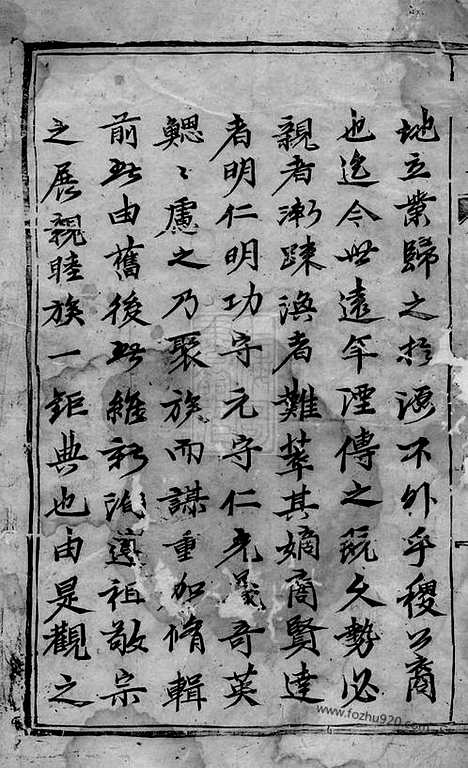 地立業歸之於酒不外乎稷公裔
也迄今世遠年湮傳之既久勢必
親者漸踈渙者難萃其嫡裔賢達
者明仁明功守元守仁克義奇英
鰓〻慮之乃聚族而謀重加脩輯
前此由舊後此維新洵遵祖敬宗
之展親睦族一鉅典也由是觀之
www.fozhu920.com